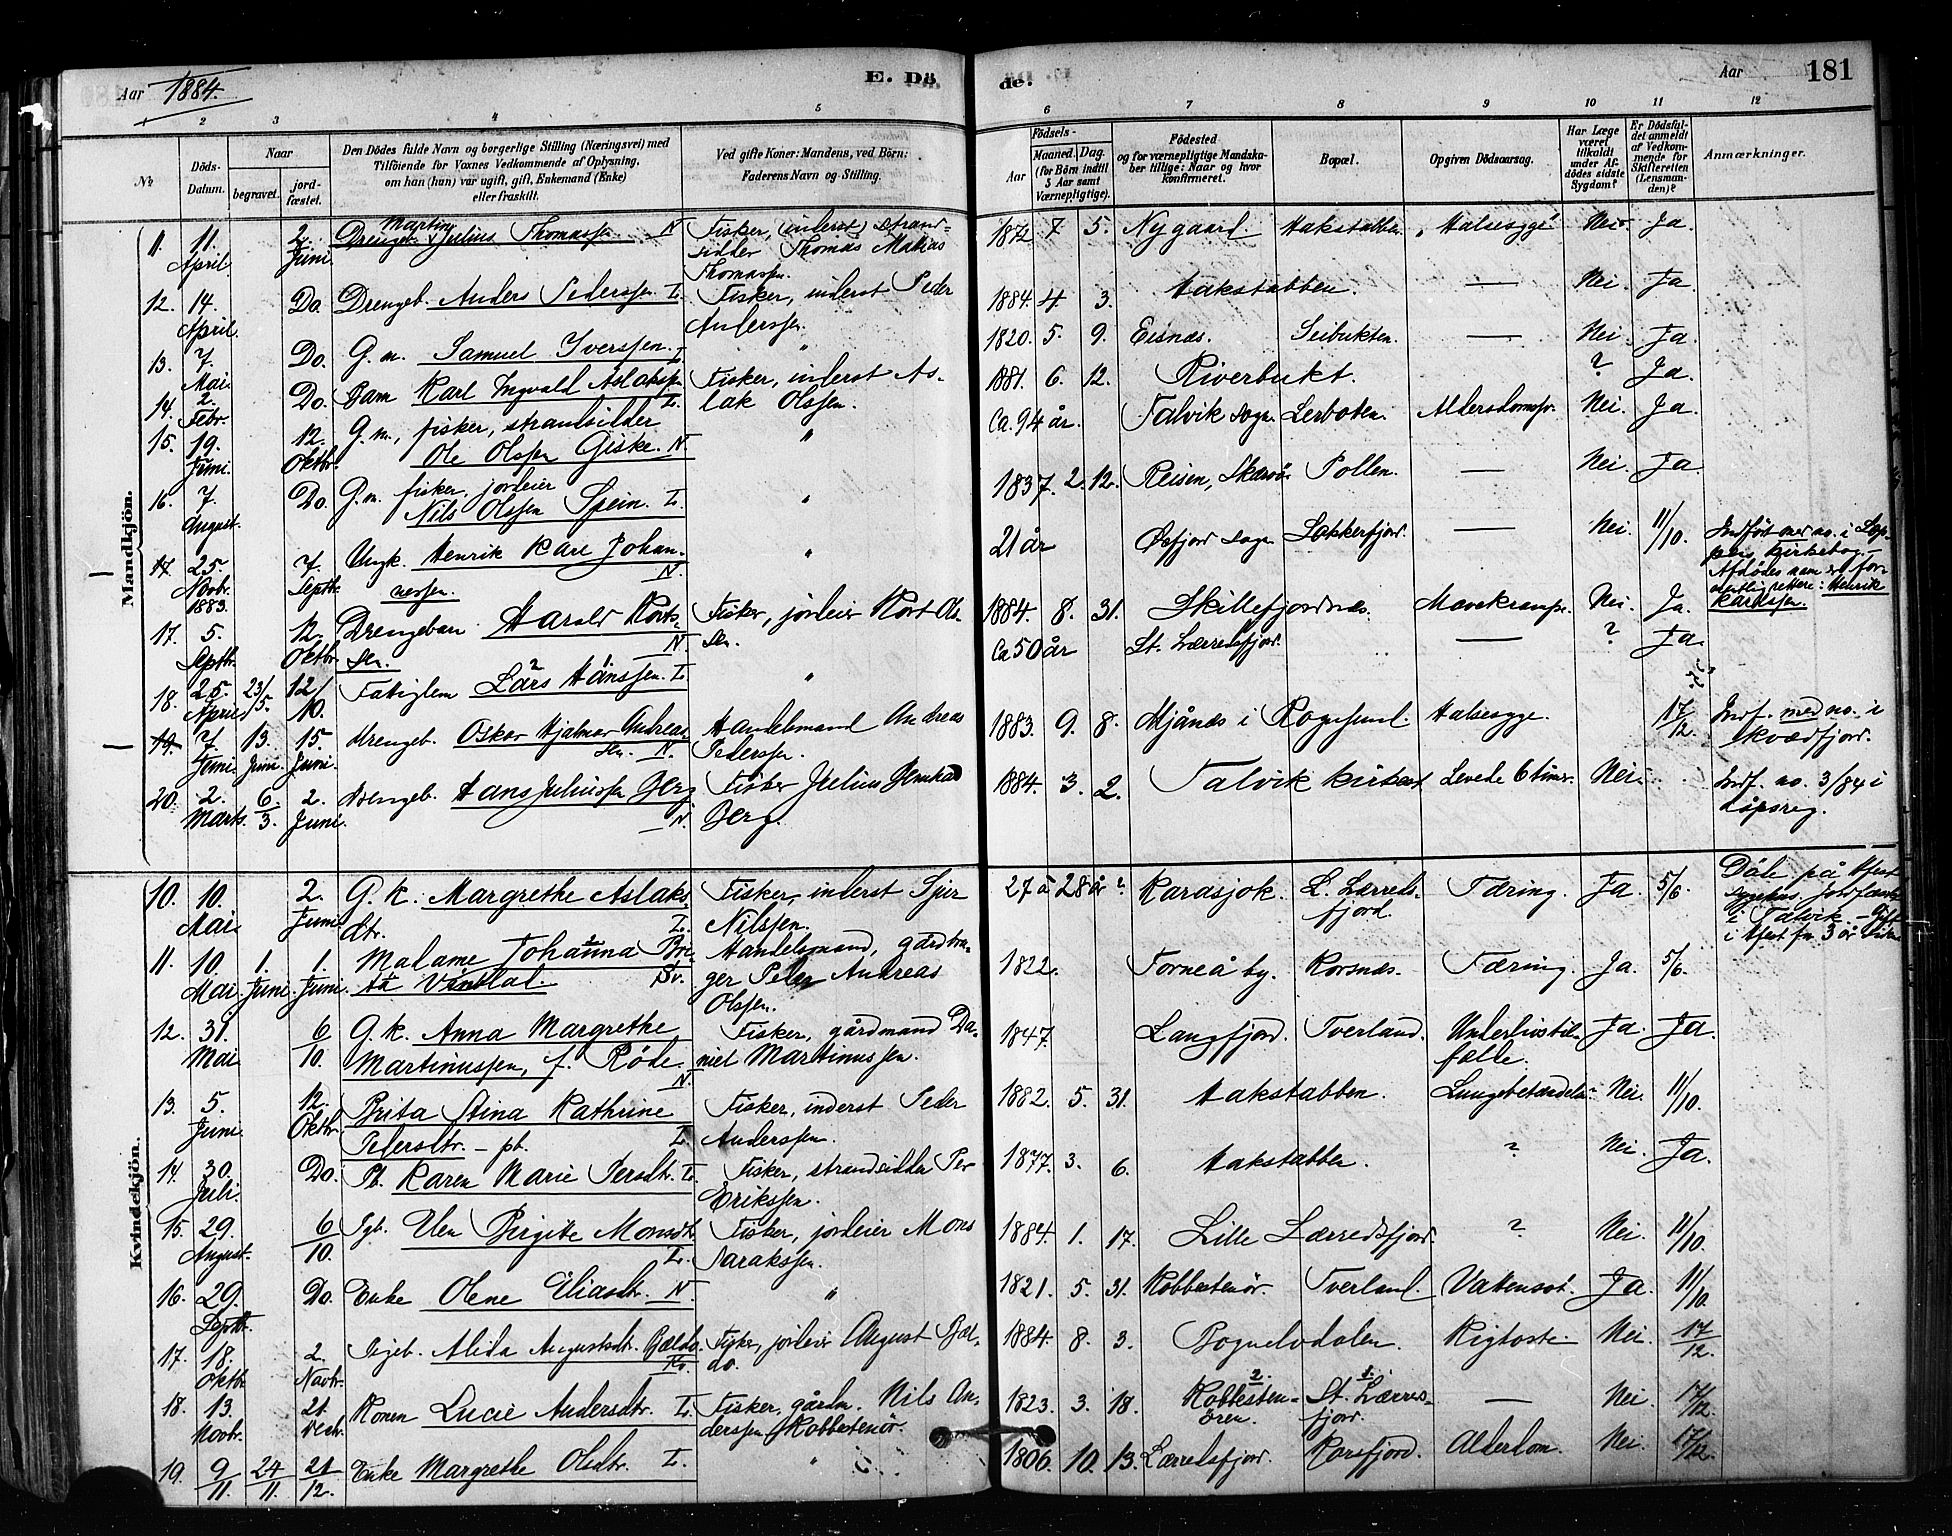 Aar 1884.
E. Dö
de.
Aar
181
1 2 3 4 5 6 7 8 9 10 11 12
No
Döds-
Datum.
Naar
begravet.
jord-
fæstet.
Den Dödes fulde Navn og borgerlige Stilling (Næringsvei) med
Tilföiende for Voxnes Vedkommende af Oplysning,
om han (hun) var ugift, gift, Enkemand (Enke)
eller fraskilt.
Ved gifte Koner: Mandens, ved Börn:
Faderens Navn og Stilling.
Födsels-
Aar
Maaned. Dag.
(for Börn indtil
5 Aar samt
Værnepligtige).
Födested
og for værnepligtige Mandska-
ber tillige: Naar og hvor
konfirmeret.
Bopæl.
Opgiven Dödsaarsag.
Har Læge
været
tilkaldt
under Af-
dödes sidste
Sygdom?
Er Dödsfal-
det anmeldt
af Vedkom-
mende for
Skifteretten
(Lensman-
den)?
Anmærkninger.
Mandkjön.
11. 11. April 2. Juni. Drengeb. Martin Julius Thomassen N Fisker, (inderst) strand-
sidder Thomas Matias
Thomassen. 1872 7 5. Nygaard. Hakstabben. "Halsesyge" Nei. Ja.
12. 14. April Do. Drengeb. Anders Pedersen L. Fisker, inderst Peder
Anderssen. 1884. 4 3. Hakstabben. — Nei. Ja.
13. 7. Mai Do. G. m. Samuel Iverssen. L " 1820. 5. 9. Eisnæs. Seibukten. — Nei. Ja.
14. 2. Febr. Do. Barn Karl Ingvald Aslakss. L. Fisker, inderst As-
lak Olssen. 1881. 6. 12. Riverbukt. ? Ja.
15. 19. Juni. 12. Oktbr. G. m., fisker, strandsidder
Ole Olssen Giske. N. " Ca. 94 år. Talvik sogn. Lerbotn. Alderdomssv. Nei. Ja.
16. 7. August. Do. G. m. fisker, jordeier
Nils Olssen Spein. L. " 1837. 2. 12. Reisen, Skærvö. Pollen. — Nei. Ja.
17. 25. Novbr. 1883. 7. Septbr. Ungk. Henrik Karl Johan-
nessen. N. " 21 år Öxfjord sogn Lokkerfjord. — Nei 11/10. Indfört med no. i Lop-
pens kirkebog. —
Afdödes navn er for-
mentlig rettere: Henrik
Karlssen.
17. 5. Septbr. 12. Oktbr. Drengebarn Harald Korts-
sen. N. Fisker, jordeier Kort Ols-
sen. 1884. 8. 31. Skillefjordnæs. Mavekrampe. Nei. Ja.
18. 25. April 23/5. 12/10. Fattiglem Lars Hanssen. L " Ca 50 år St. Lærredsfjord. — ? Ja.
19. 7. Juni. 13. Juni. 15. Juni. Drengeb. Oskar Hjalmar Andreas-
sen. N. Handelsmand Andreas
Pederssen. 1883. 9. 8. Mjånæs i Rognsund. Halsesyge. 17/12. Indf. med no. i
Kvædfjord.
20. 2. Marts. 6/3. 2. Juni. Drengeb. Hans Juliussen Berg N. Fisker Julius
Berg. 1884. 3. 2. Talvik kirkested Levede 6 timer. Nei. Indf. no. 3/84 i
dåpsreg.
Kvindekjön.
10. 10. Mai 2. Juni G. k. Margrethe Aslaks-
dtr. L. Fisker, inderst Sjur
Nilssen. 27 à 28 år? Karasjok. L. Lærreds-
fjord. Tæring. Ja 5/6. Döde på
i Talvik. — Gift
i 3 år siden
11. 10. Mai. 1. Juni. 1. Juni. Madame Johanna Bri-
ta Vänblal. Sv. Handelsmand, gårdbru-
ger Peder Andreas
Olssen. 1822. Torneå by. Korsnæs. Tæring. Ja. 5/6.
12. 31. Mai 6/10. G. k. Anna Margrethe
Martinussen, f. Röde. N. Fisker, gårdmand Da-
niel Martinussen. 1847. Langfjord. Tverland. Underlivstil-
fælle. Ja. Ja.
13. 5. Juni. 12. Oktbr. Brita Stina Kathrine
Pedersdtr. — pb. L. Fisker, inderst Peder
Anderssen. 1882. 5. 31. Hakstabben. Lungebetændelse Nei. 11/10.
14. 30. Juli. Do. Pb. Karen Marie Persdtr. L. Fisker, strandsidder Per
Erikssen. 1877. 3. 6. Hakstabben. ? Nei. Ja.
15. 29. August. 6/10. Pgb. Elen Birgitte Monsdtr. L. Fisker, jordeier Mons
Parakssen. 1884. 1. 17. Lille Lærredsfjord. ? Nei. 11/10.
16. 29. Septbr. Do. Enke Olene Eliasdtr. N. " 1821. 5. 31. Kobbestenör. Tverland. Vattersot. Ja. 11/10.
17. 18. Oktbr 2. Novbr. Pigeb. Alida Augustsdtr. Bældo. Kv. Fisker, jordeier August Bæl-
do. 1884. 8. 3. Bognelvdalen. Kighoste. Nei. 17/12.
18. 13. Novbr. 21. Decbr. Konen Lucie Andersdtr. L. Fisker, gårdm. Nils An-
derssen Kobbestenör. 1823. 3. 18. Kobbesten-
ören. St. Lærreds-
fjord. — Nei. 17/12.
19. 9/11. 24/11. 21/12. Enke Margrethe Olsdtr. L. " 1806. 10. 13. Lærredsfjord. Korsfjord. Alderdom. Nei. 17/12.